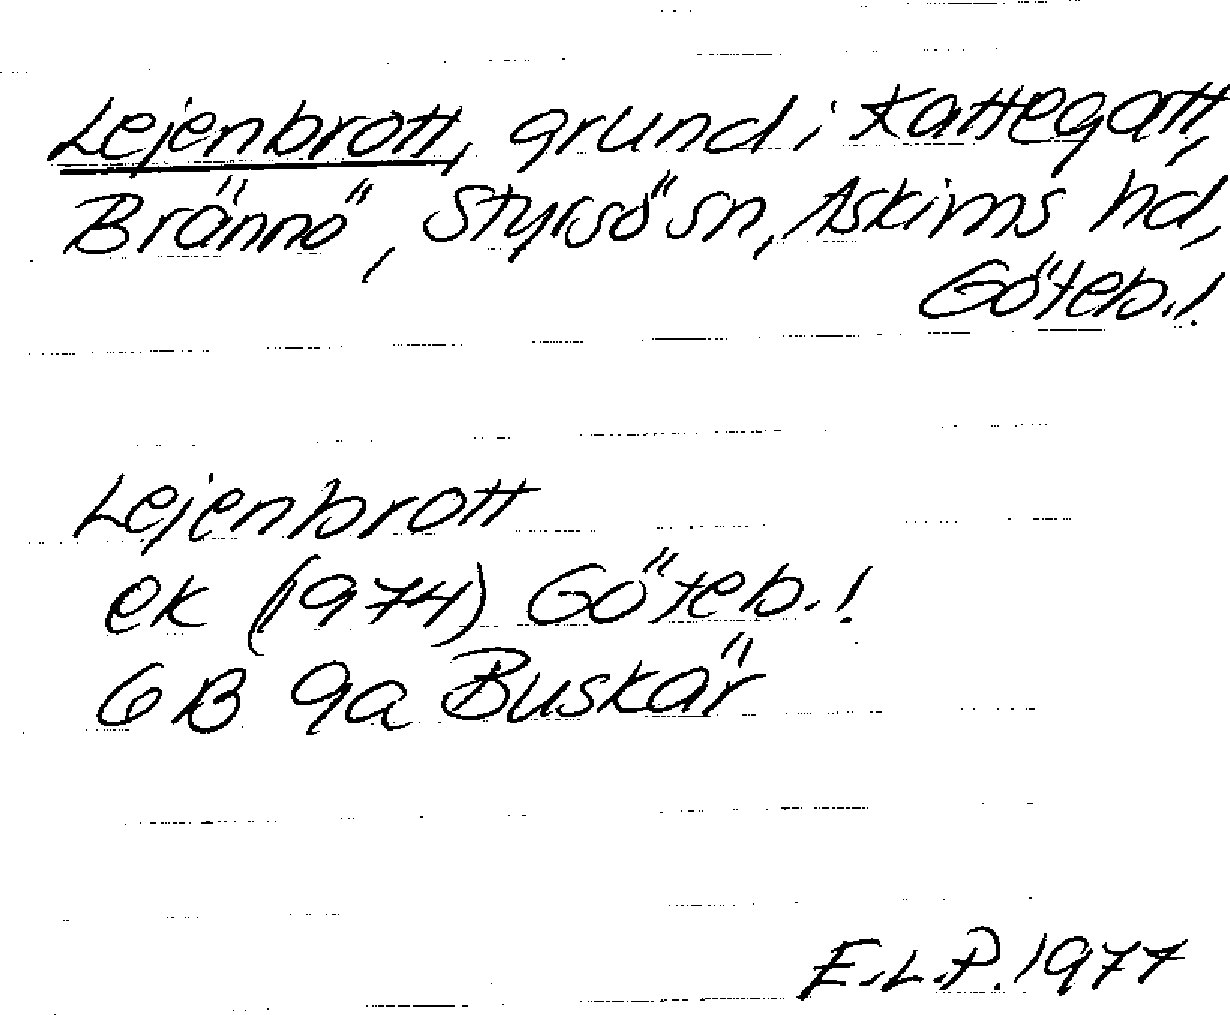 Lejenbrott, grund i Kattegatt,
Brännö, Styrsö sn, Askims hd,
Göteb.!
Lejenbrott
ek (1974) Göteb.!
6B 9a Buskär
E.L.P. 1977